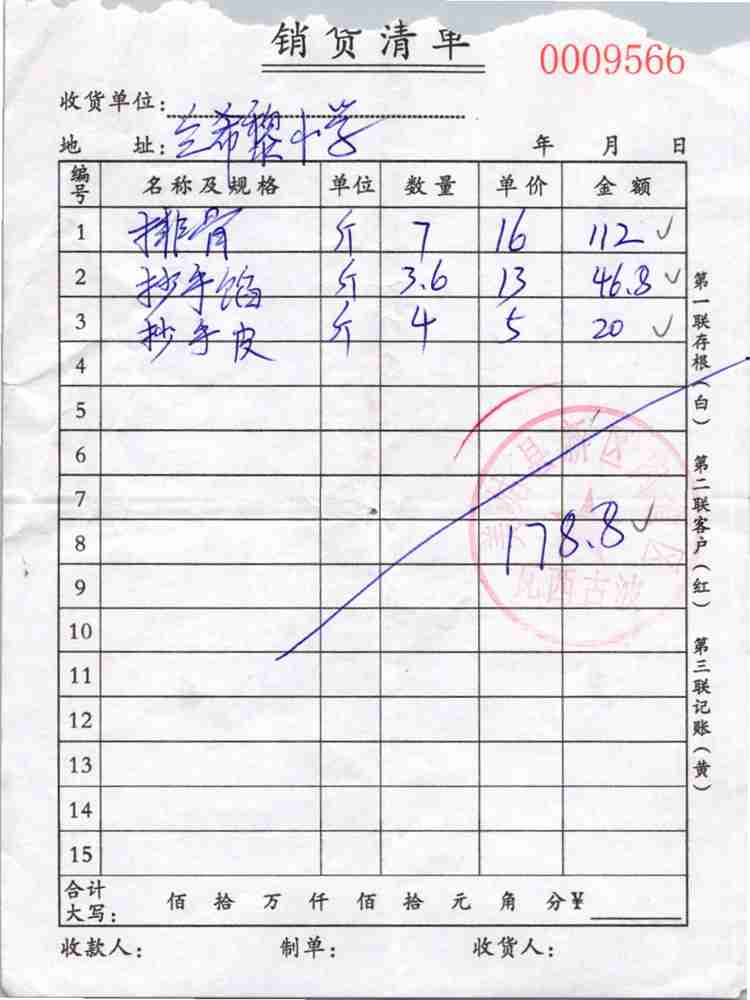 销货清单
0009566
收货单位：
地 址：兰希黎小学 年 月 日
编号 名称及规格 单位 数量 单价 金额
1 排骨 斤 7 16 112 ✓
2 抄手馅 斤 3.6 13 46.8 ✓
3 抄手皮 斤 4 5 20 ✓
4
5
6
7
8 178.8 ✓
9
10
11
12
13
14
15
合计大写： 佰 拾 万 仟 佰 拾 元 角 分 ¥
收款人： 制单： 收货人：
第一联存根（白） 第二联客户（红） 第三联记账（黄）
瓦西古波